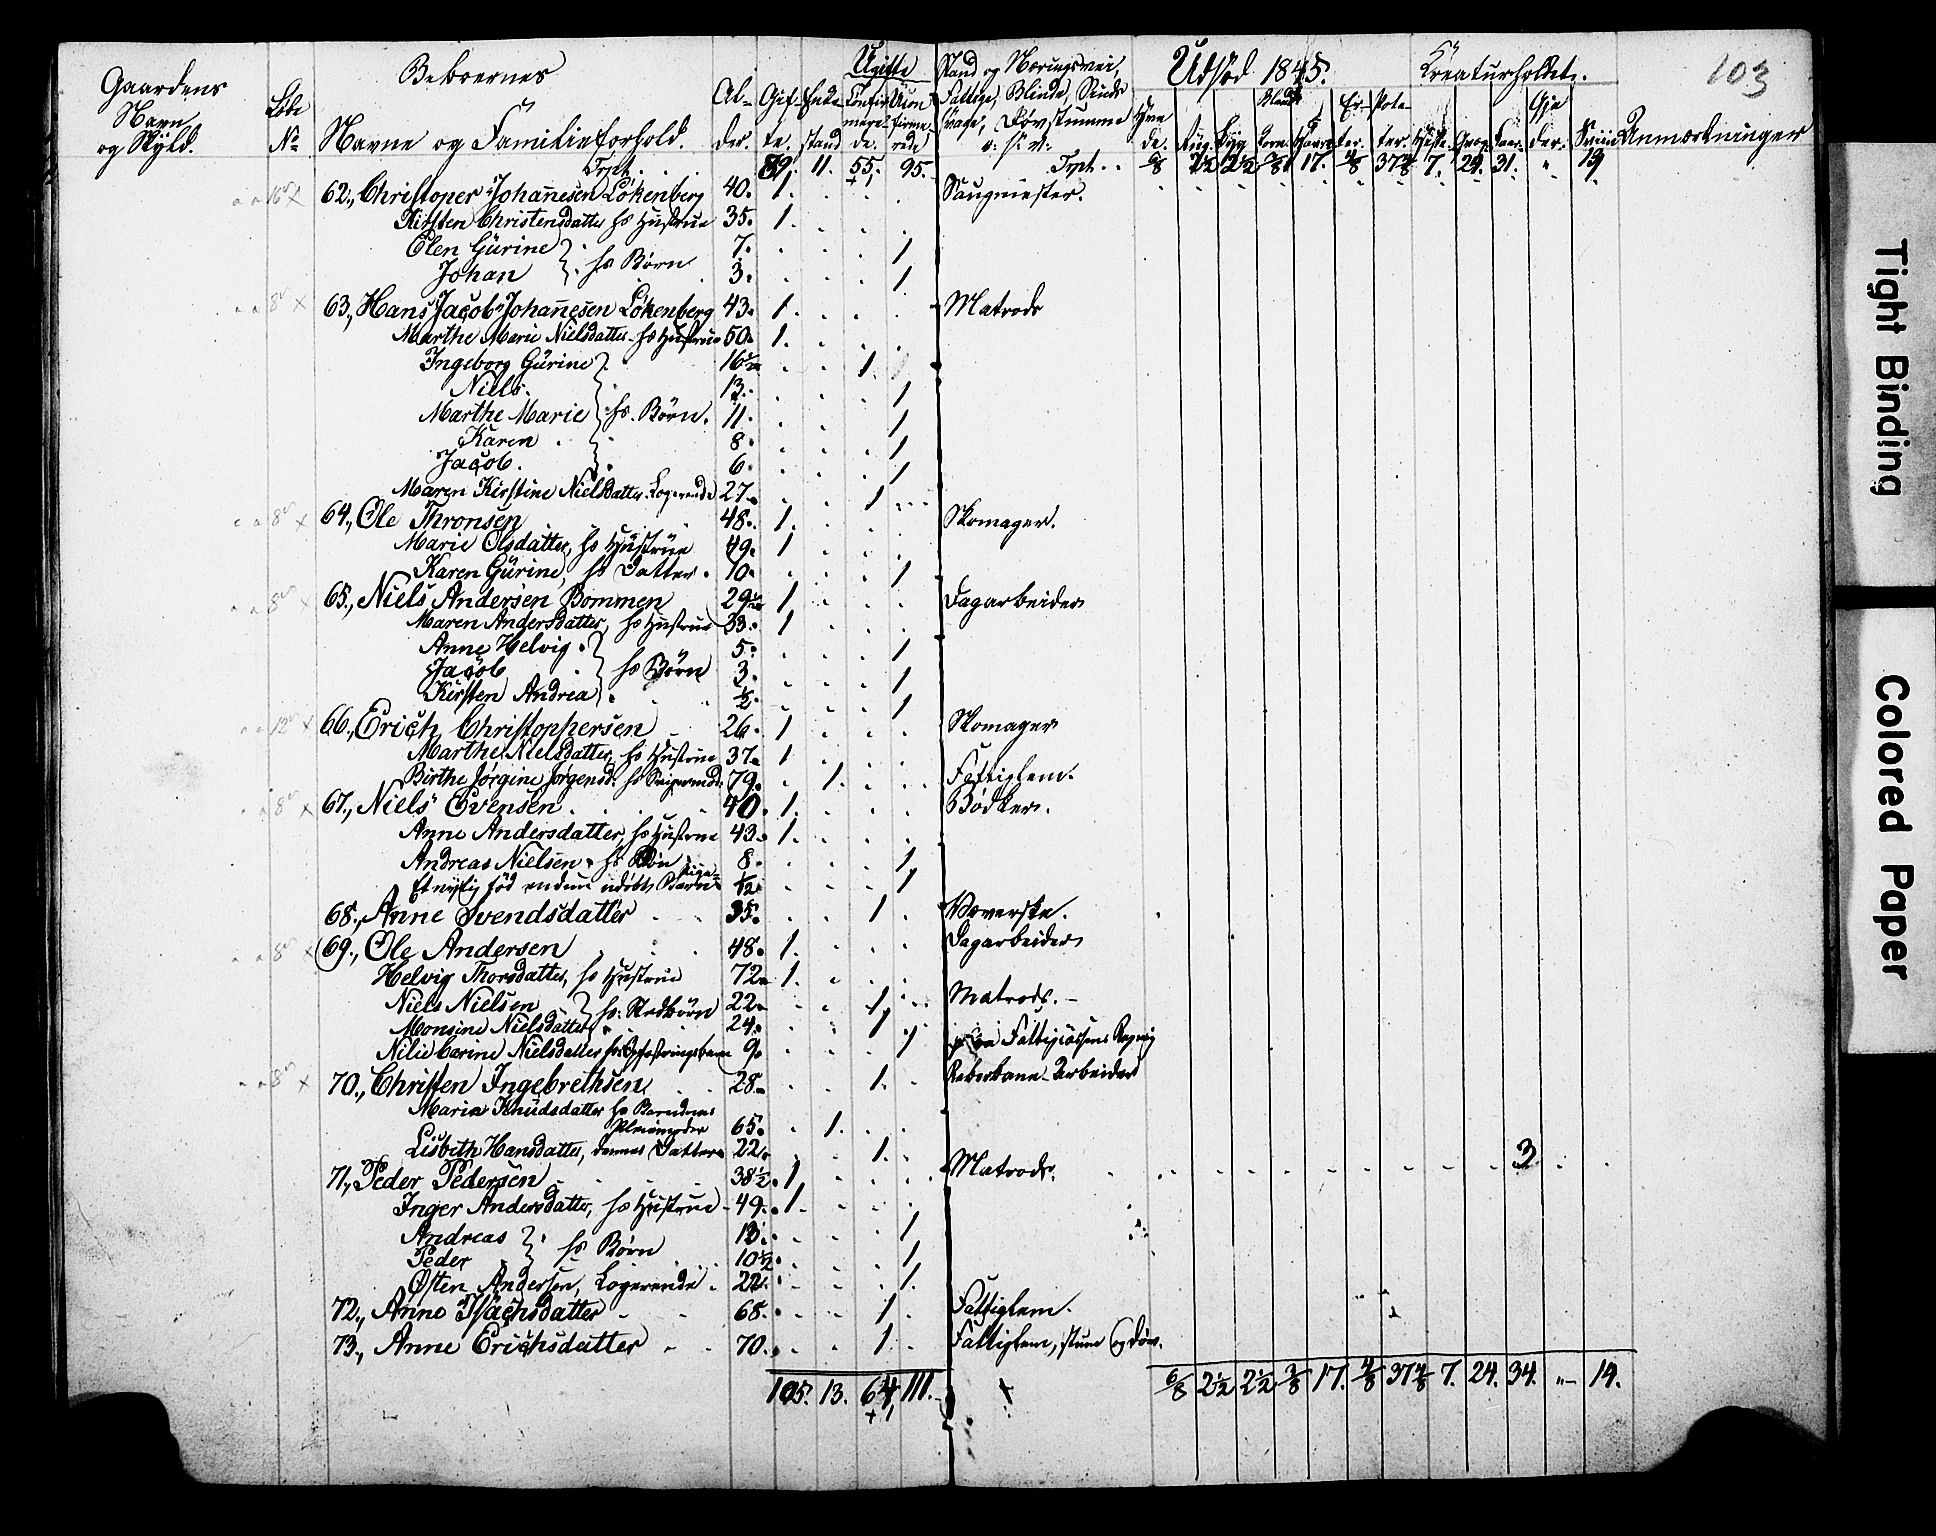 103
Gaardens Navn og Skyld.
Løbe №
Beboernes
Navne og Familieforhold.
Alder.
Gifte.
Enkestand
Ugifte
Confirmerede.
Uconfirmerede
Stand og Næringsvei, Fattige, Blinde, Sindssvage, Døvstumme o: s: v:
Udsæd 1845.
Hvede. Rug. Byg Blandkorn. Havre Erter. Poteter.
Kreaturholdet.
Heste. Storf. Faar. Gjeder. Sviin
Anmærkninger
Trpt. 89. 11. 55. 95. Trpt. 6/8 2½ 2½ 3/8 17. 4/8 37 4/8 7. 24. 31. " 19
62., Christoper Johannesen Løkenberg 40. 1. Saugmester.
Kirsten Christensdatter hs Hustrue 35. 1.
Elen Gurine } hs Børn 7. 1
Johan 3. 1
63., Hans Jacob Johannesen Løkenberg 43. 1. Matrods
Marthe Marie Nielsdatter hs Hustrue 50. 1.
Ingeborg Gurine } 16½ 1.
Niels. 13. 1
Marthe Marie } hs. Børn. 11. 1
Karen 8. 1
Jacob. 6. 1
Maren Kirstine Nielsdatter. Logerende 27. 1
64., Ole Thronsen 48. 1. Skomager.
Marie Olsdatter, hs Hustrue 49. 1
Karen Gurine, hs Datter. 10. 1
65., Niels Andersen Bommen 29½ 1 Dagarbeider
Maren Andersdatter, hs Hustrue 33. 1
Anne Helvig } 5. 1
Jacob } hs Børn 3. 1
Kirsten Andrea ½. 1
66., Erich Christophersen 26. 1 Skomager
Marthe Nielsdatter, hs Hustrue 37. 1
Birthe Jørgine Jørgensd. hs Svigermod. 79. 1. Fattiglem.
67., Niels Evensen 40. 1. Bødker.
Anne Andersdatter, hs Hustrue 43. 1.
Andreas Nielsen. hs Søn 8. 1
Et nylig fød endnu udøbt Pige Barn 1/12 1
68., Anne Svendsdatter 35. 1 Væverske.
69., Ole Andersen 48. 1. Dagarbeider
Helvig Thorsdatter, hs Hustrue 72. 1.
Niels Nielsen } hs. Stedbørn 22. 1 Matrods.
Monsine Nielsdatter 24. 1
Nilie Carine Nielsdatter hs Opfostringsbarn 9. 1 Fattigcassens Regning
70., Christen Ingebrethsen 28. 1. Reberbane-Arbeider
Maria Knudsdatter hs Barndoms Pleiemoder 65. 1.
Lisbeth Hansdatter, dennes Datter 22. 1.
71., Peder Pedersen 38½. 1 Matrods. 3
Inger Andersdatter, hs Hustrue 49. 1.
Andreas } hs Børn 13. 1
Peder 10½. 1
Østen Andersen, Logerende. 22. 1.
72., Anne Isachsdatter 68. 1. Fattiglem.
73., Anne Erichsdatter 70. 1. Fattiglem, stum og døv.
105. 13. 64. 111. 6/8 2½ 2½ 3/8 17. 4/8 37 4/8 7. 24. 34. " 19.
Tight Binding
Colored Paper